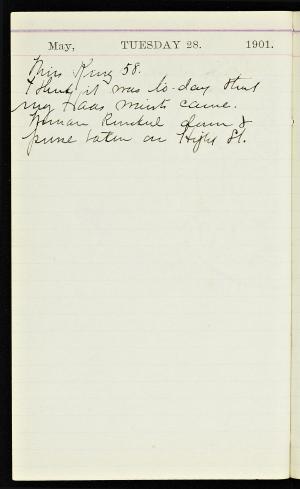 May, TUESDAY 28. 1901.
Miss King 58.
I think it was to-day that
my Haas waists came.
Norman Runkel down &
taken on High St.